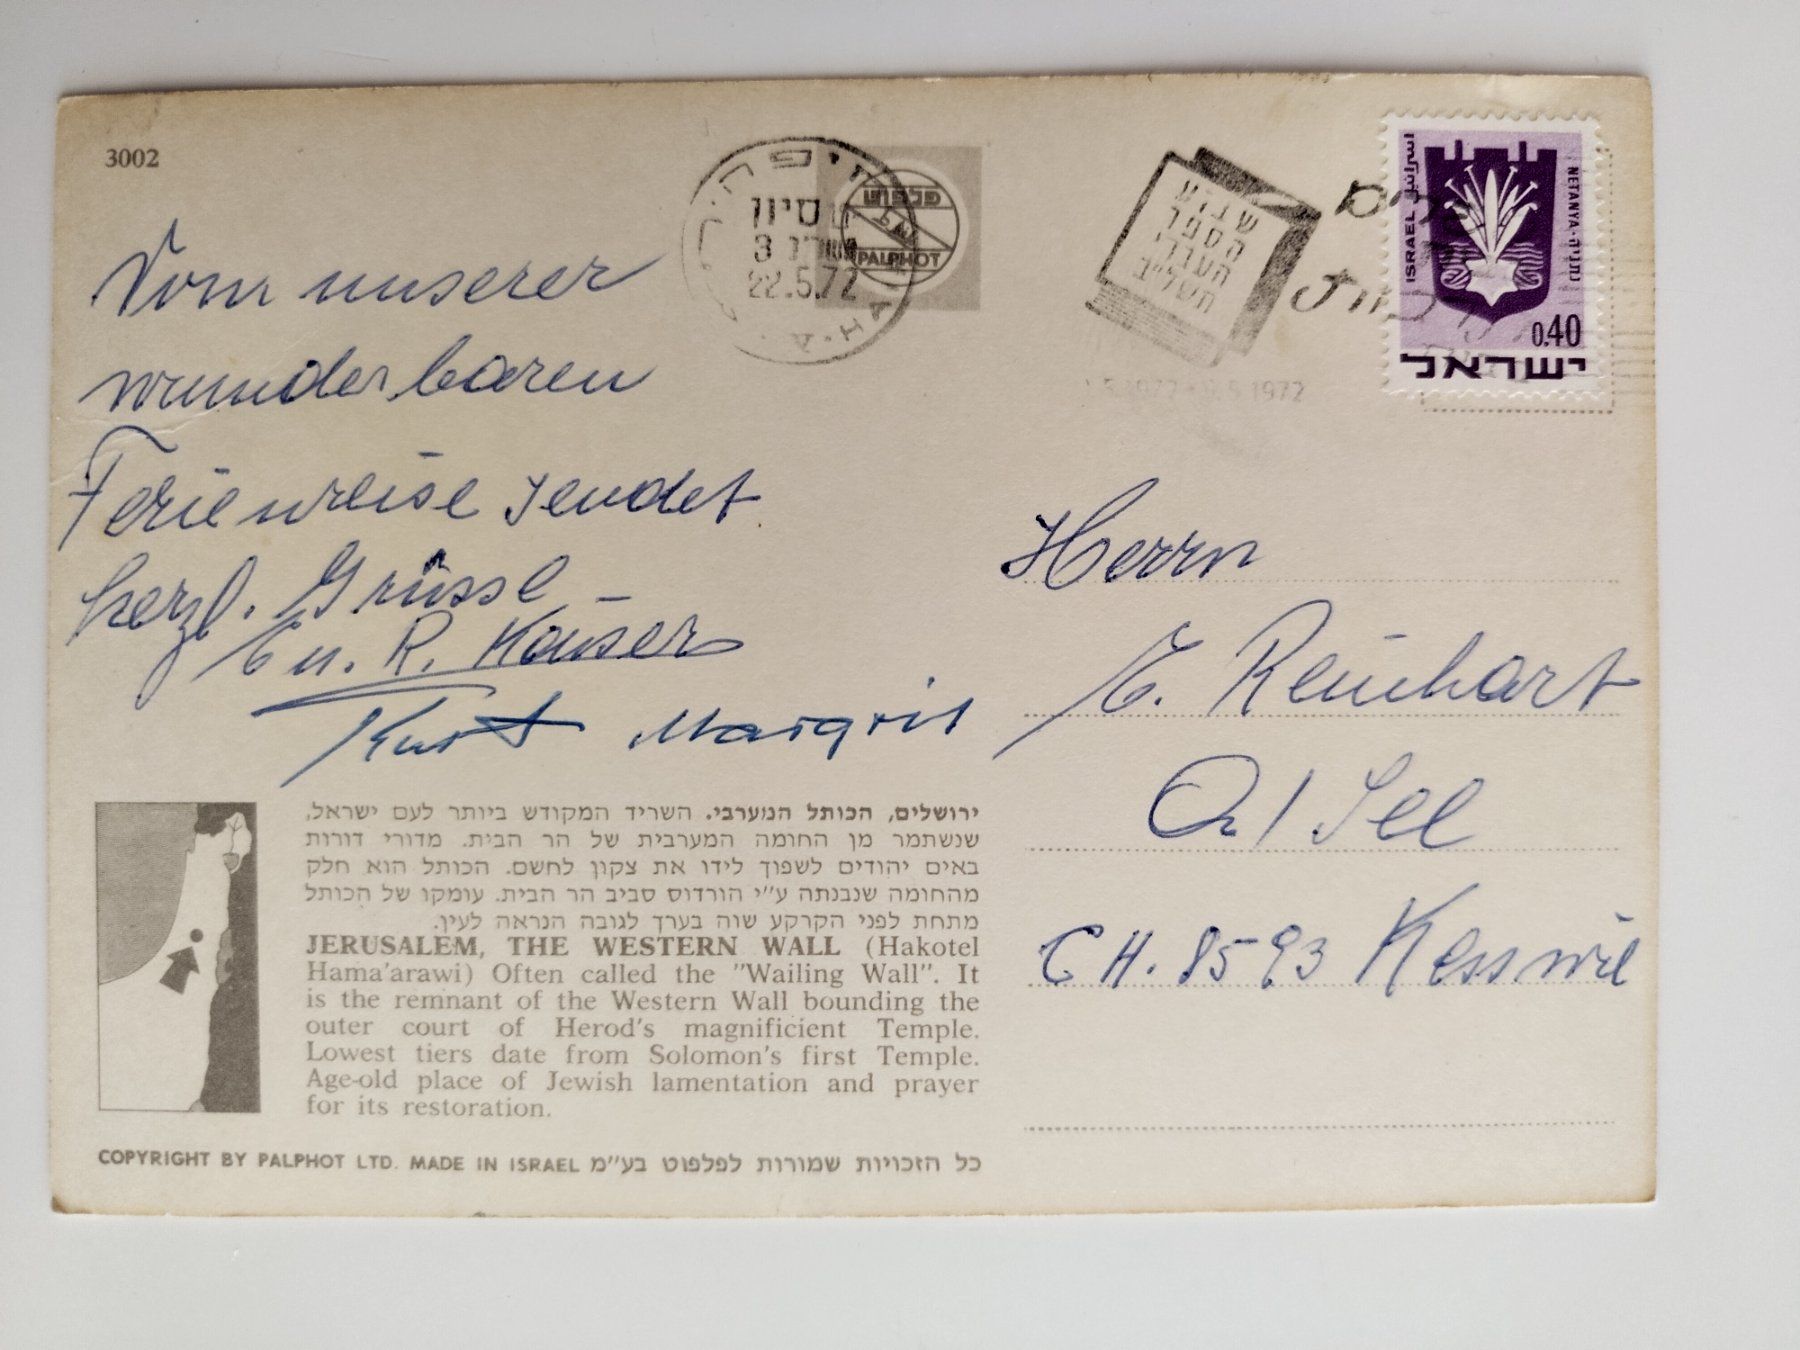 3002
Vom unserer
wunderbaren
Ferienreise sendet
herzl. Grüsse
E u. R. Kauser
Kurt Margrit
חיפה
סיון
3
22.5.72
HAIFA
פלפוט
PALPHOT
שבוע
הספר
העברי
תשל״ב
5.1972
ISRAEL إسرائيل
NETANYA · נתניה
0.40
ישראל
Herrn
E. Reinhart
CH. 8593 Kesswil
ירושלים, הכותל המערבי. השריד המקודש ביותר לעם ישראל,
שנשתמר מן החומה המערבית של הר הבית. מדורי דורות
באים יהודים לשפוך לידו את צקון לחשם. הכותל הוא חלק
מהחומה שנבנתה ע״י הורדוס סביב הר הבית. עומקו של הכותל
מתחת לפני הקרקע שוה בערך לגובה הנראה לעין.
JERUSALEM, THE WESTERN WALL (Hakotel
Hama'arawi) Often called the "Wailing Wall". It
is the remnant of the Western Wall bounding the
outer court of Herod's magnificient Temple.
Lowest tiers date from Solomon's first Temple.
Age-old place of Jewish lamentation and prayer
for its restoration.
COPYRIGHT BY PALPHOT LTD. MADE IN ISRAEL כל הזכויות שמורות לפלפוט בע״מ